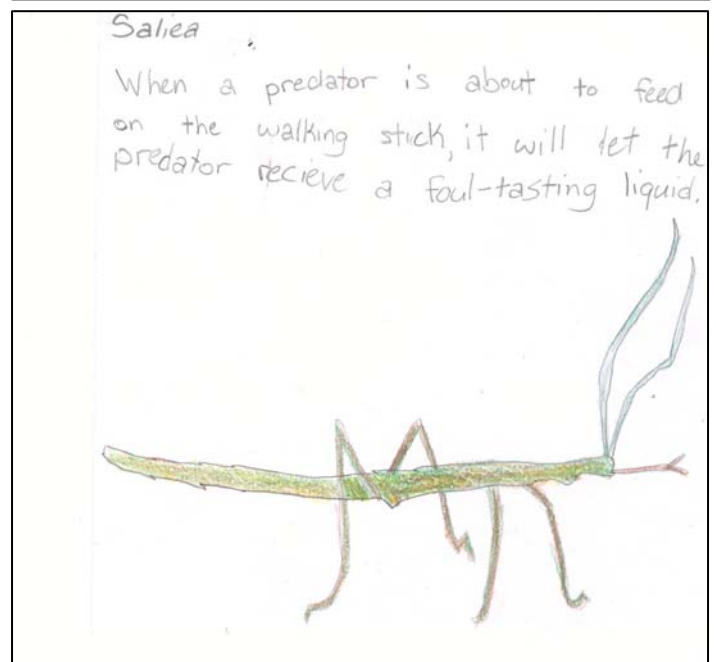 Saliea
When a predator is about to feed
on the walking stick, it will let the
predator recieve a foul-tasting liquid.